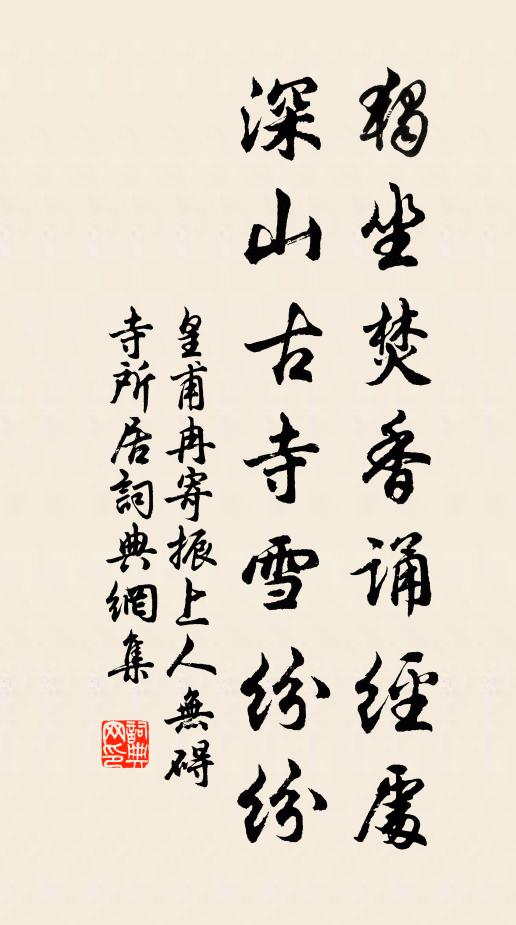 獨坐焚香誦經處
深山古寺雪紛紛
皇甫冉寄振上人無碍
寺所居詞典網集
詞典
网印